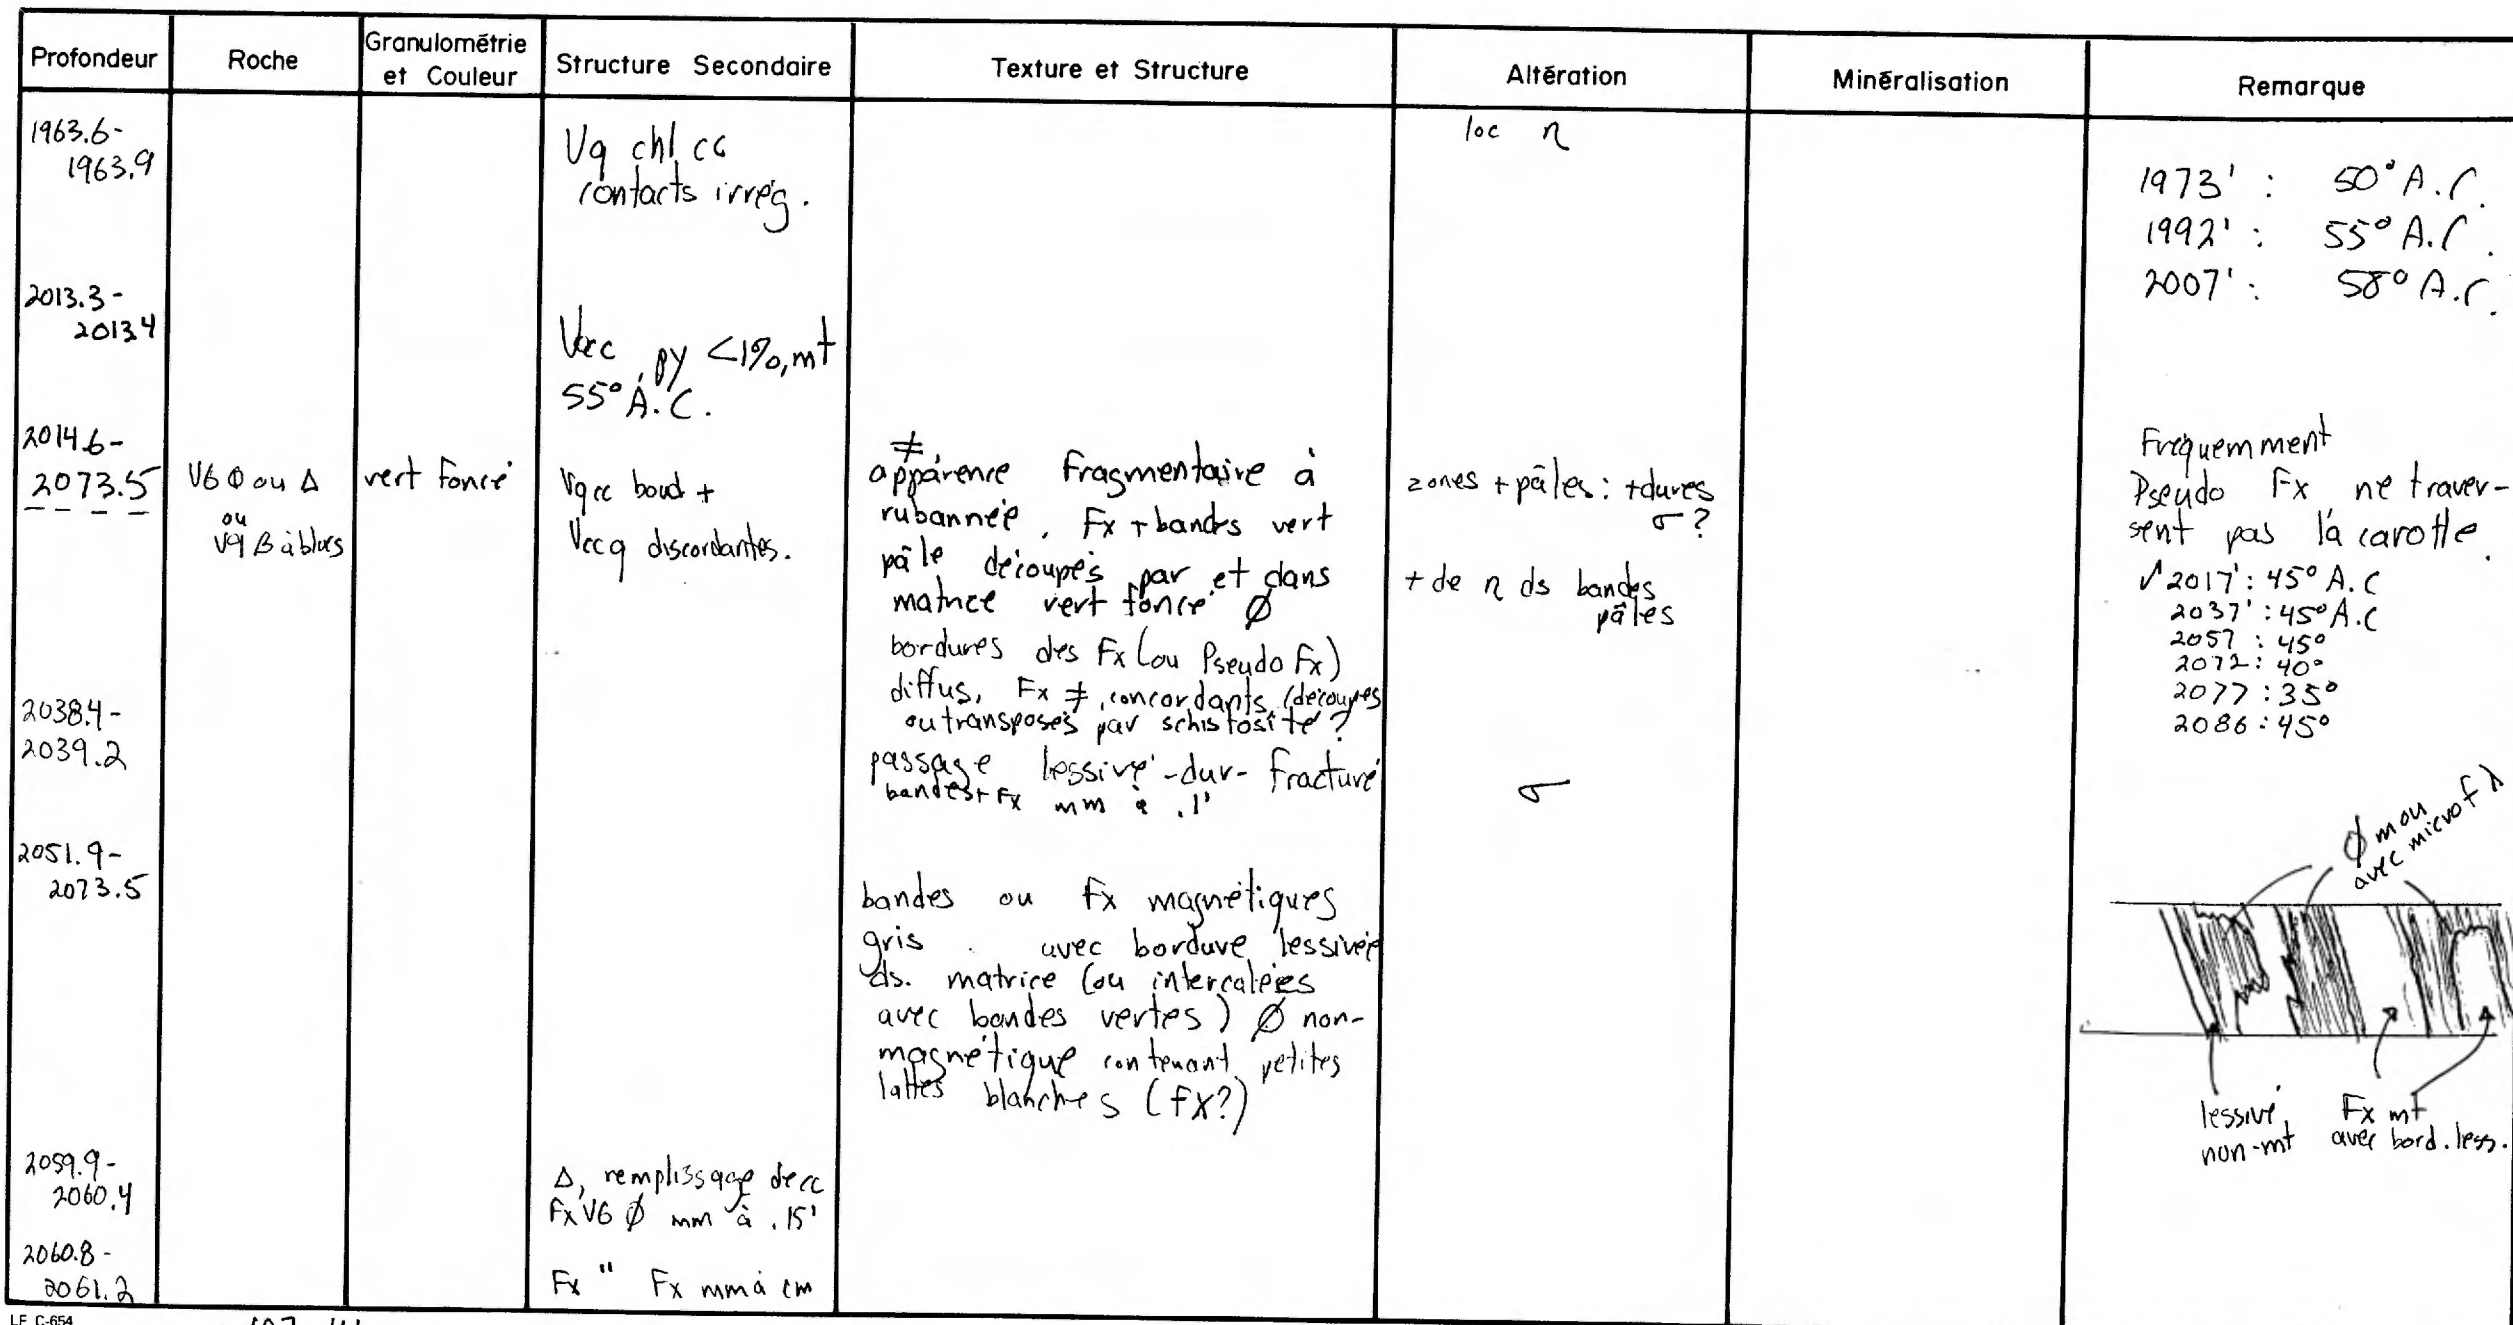 Profondeur
Roche
Granulométrie
et Couleur
Structure Secondaire
Texture et Structure
Altération
Minéralisation
Remarque
1963.6-
1963.9
Vq chl cc
contacts irrég.
loc η
1973' : 50° A.C.
1992' : 55° A.C.
2007' : 58° A.C.
2013.3-
2013.4
py <1%, mt
55° A.C.
2014.6-
2073.5
V6 Φ ou Δ
ou
V9 B à blocs
vert foncé
Vqcc boud +
Vccq discordantes.
≠
apparence fragmentaire à
rubannée. Fx + bandes vert
pâle découpés par et dans
matrice vert foncé Ø
bordures des Fx (ou Pseudo Fx)
diffus, Fx ≠ concordants (découpés
ou transposés par schistosité?
zones + pâles: + dures
σ?
+ de η ds bandes
pâles
Fréquemment
Pseudo Fx ne traver-
sent pas la carotte.
√ 2017': 45° A.C
2037': 45° A.C
2057 : 45°
2072: 40°
2077: 35°
2086: 45°
2038.4-
2039.2
passage lessivé-dur-fracturé
bandes + Fx mm à .1'
σ
2051.9-
2073.5
bandes ou Fx magnétiques
gris avec bordure lessivée
ds. matrice (ou intercalées
avec bandes vertes) Ø non-
magnétique contenant petites
lattes blanches (FX?)
Ø mou
avec micro f λ
lessivé
non-mt
Fx mt
avec bord. less.
2059.9-
2060.4
Δ, remplissage de cc
Fx V6 Ø mm à .15'
2060.8-
2061.2
Fx " Fx mm à cm
LF C-654